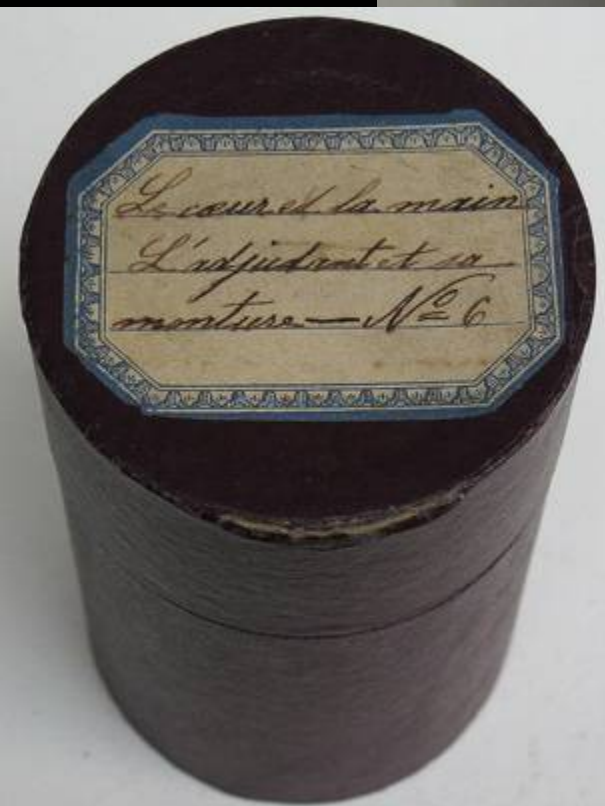 Le cœur et la main
L'adjudant et sa
monture — Nº 6